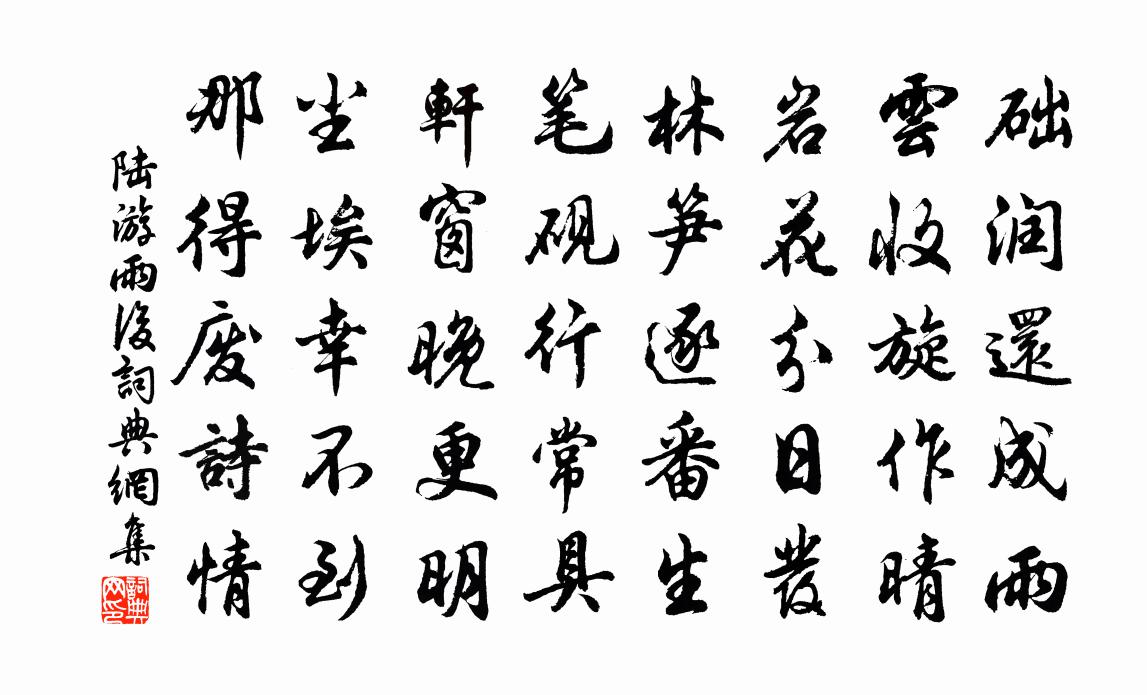 础润還成雨
雲收旋作晴
岩花分日發
林笋逐番生
笔砚行常具
軒窗晚更明
尘埃幸不到
那得废詩情
陆游雨後詞典網集
詞典
网印